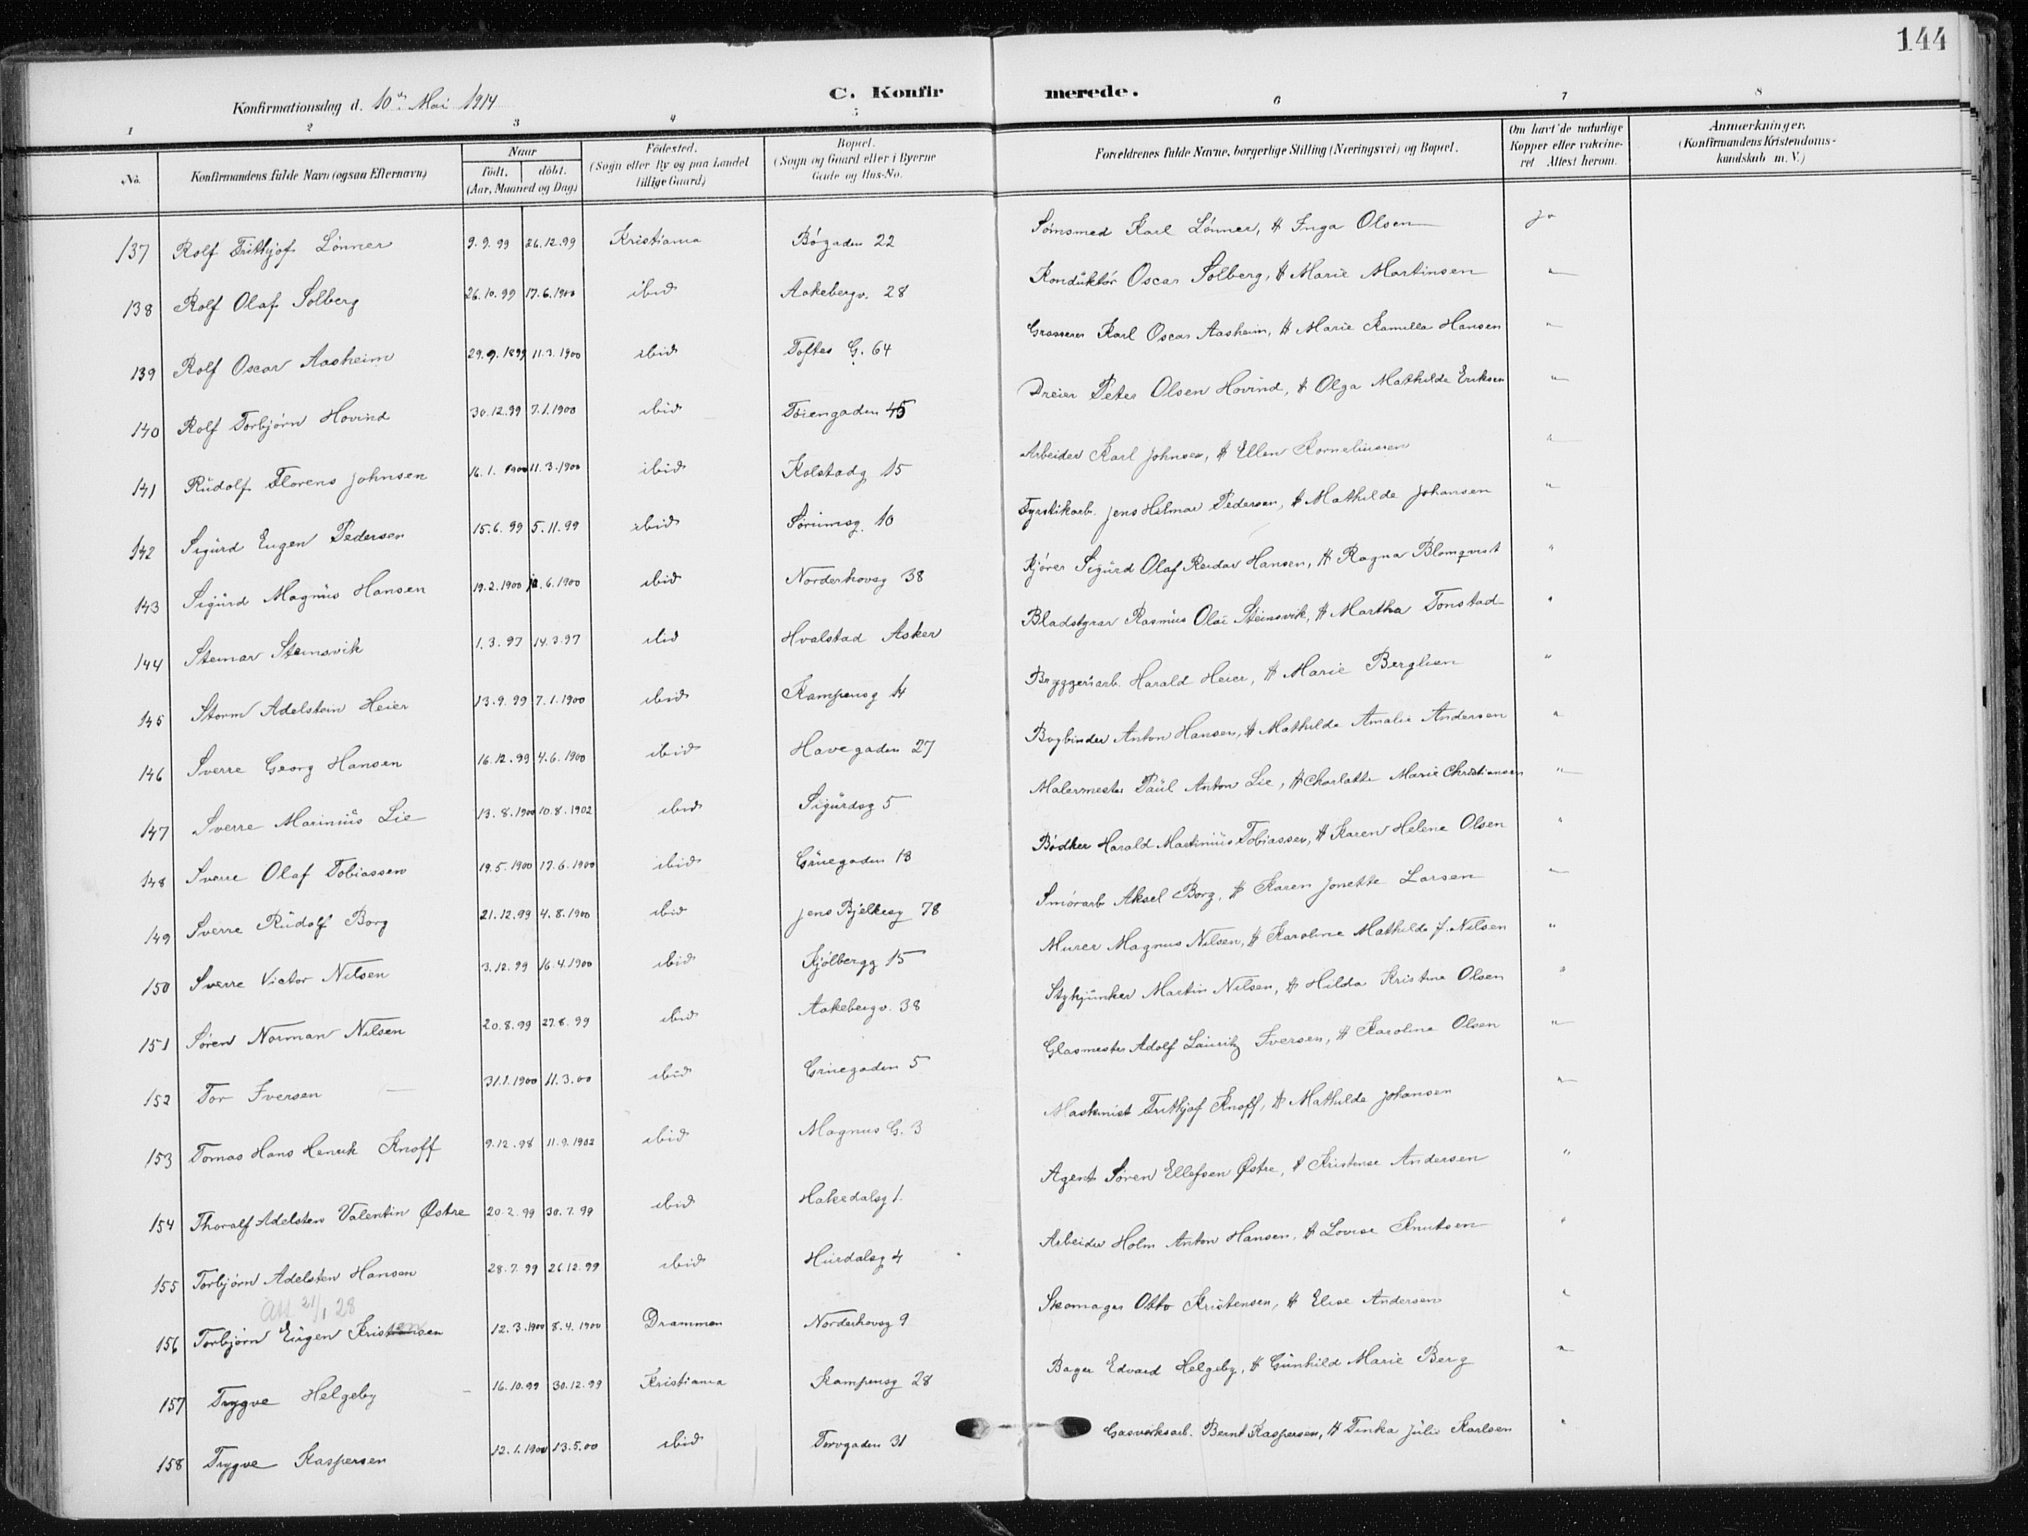 144
Konfirmationsdag d. 10de Mai 1914 C. Konfirmerede.
1 2 3 4 5 6 7 8
No. Konfirmandens fulde Navn (ogsaa Efternavn) Naar født. døbt. (Aar, Maaned og Dag) Fødested. (Sogn eller By og paa Landet tillige Gaard) Bopæl. (Sogn og Gaard eller i Byerne Gade og Hus-No. Forældrenes fulde Navne, borgerlige Stilling (Næringsvei) og Bopæl. Om havt de naturlige Kopper eller vakcineret Attest herom. Anmærkninger. (Konfirmandens Kristendomskundskab m. V.)
137 Rolf Frithjof Lönner 9.9.99 26.12.99 Kristiania Bögaden 22 Sömsmed Karl Lönner, H Inga Olsen ja
138 Rolf Olaf Solberg 26.10.99 17.6.1900 ibid Aakebergv. 28 Konduktör Oscar Solberg, H Marie Martinsen "
139 Rolf Oscar Aasheim 29.9.1899 11.3.1900 ibid Toftes G. 64 Grosserer Karl Oscar Aasheim, H Marie Kamilla Hansen "
140 Rolf Torbjörn Hovind 30.12.99 7.1.1900 ibid Töiengaden 45 Dreier Peter Olsen Hovind, H Olga Mathilde Eriksen "
141 Rudolf Florens Johnsen 16.1.1900 11.3.1900 ibid Kolstadg 15 Arbeider Karl Johnsen, H Ellen Korneliussen "
142 Sigurd Eugen Pedersen 15.6.99 5.11.99 ibid Sörumsg. 10 Fyrstikarb. Jens Hilmar Pedersen, H Mathilde Johansen "
143 Sigurd Magnus Hansen 19.2.1900 .6.1900 ibid Norderhovsg 38 Kjörer Sigurd Olaf Reidar Hansen, H Ragna Blomqvist "
144 Steinar Steinsvik 1.3.97 14.3.97 ibid Hvalstad Asker Bladstyrer Rasmus Olai Steinsvik, H Martha Tonstad "
145 Storm Adelstein Heier 13.9.99 7.1.1900 ibid Kampensg 14 Bryggeriarb. Harald Heier, H Marie Berglien "
146 Sverre Georg Hansen 16.12.99 4.6.1900 ibid Havegaden 27 Bogbinder Anton Hansen, H Mathilde Amalie Andersen "
147 Sverre Marinius Lie 13.8.1900 10.8.1902 ibid Sigurdsg 5 Malermester Paul Anton Lie, H Charlotte Marie Christiansen "
148 Sverre Olaf Tobiassen 19.5.1900 17.6.1900 ibid Grüegaden 13 Bödker Harald Martinius Tobiassen, H Karen Helene Olsen "
149 Sverre Rudolf Borg 21.12.99 4.8.1900 ibid Jens Bjelkesg 78 Smörarb Aksel Borg, H Karen Jonette Larsen "
150 Sverre Victor Nilsen 3.12.99 16.4.1900 ibid Kjölbergg 15 Murer Magnus Nilsen, H Karoline Mathilde f. Nilsen "
151 Sören Norman Nilsen 20.8.99 27.8.99 ibid Aakebergv. 38 Stykjunker Martin Nilsen, H Hilda Kristine Olsen "
152 Tor Iversen 31.1.1900 11.3.00 ibid Grüegaden 5 Glasmester Adolf Lauritz Iversen, H Karoline Olsen "
153 Tomas Hans Henrik Knoff 9.12.98 11.9.1902 ibid Magnus G. 3 Maskinist Frithjof Knoff, H Mathilde Johansen "
154 Thoralf Adelsten Valentin Østre 20.2.99 30.7.99 ibid Hakedalsg 1. Agent Sören Ellefsen Østre, H Kristense Andersen "
155 Torbjörn Adelsten Hansen 28.7.99 26.12.99 ibid Hurdalsg 4 Arbeider Holm Anton Hansen, H Lovise Knutsen "
att 21/1 28
156 Torbjörn Eugen Kristensen 12.3.1900 8.4.1900 Drammen Norderhovsg 9 Skomager Otto Kristensen, H Elise Andersen "
157 Trygve Helgeby 16.10.99 30.12.99 Kristiania Kampensg 28 Bager Edvard Helgeby, H Gunhild Marie Berg "
158 Trygve Kaspersen 12.1.1900 13.5.00 ibid Torvgaden 31 Gasverksarb. Bernt Kaspersen, H Tinka Julie Karlsen "